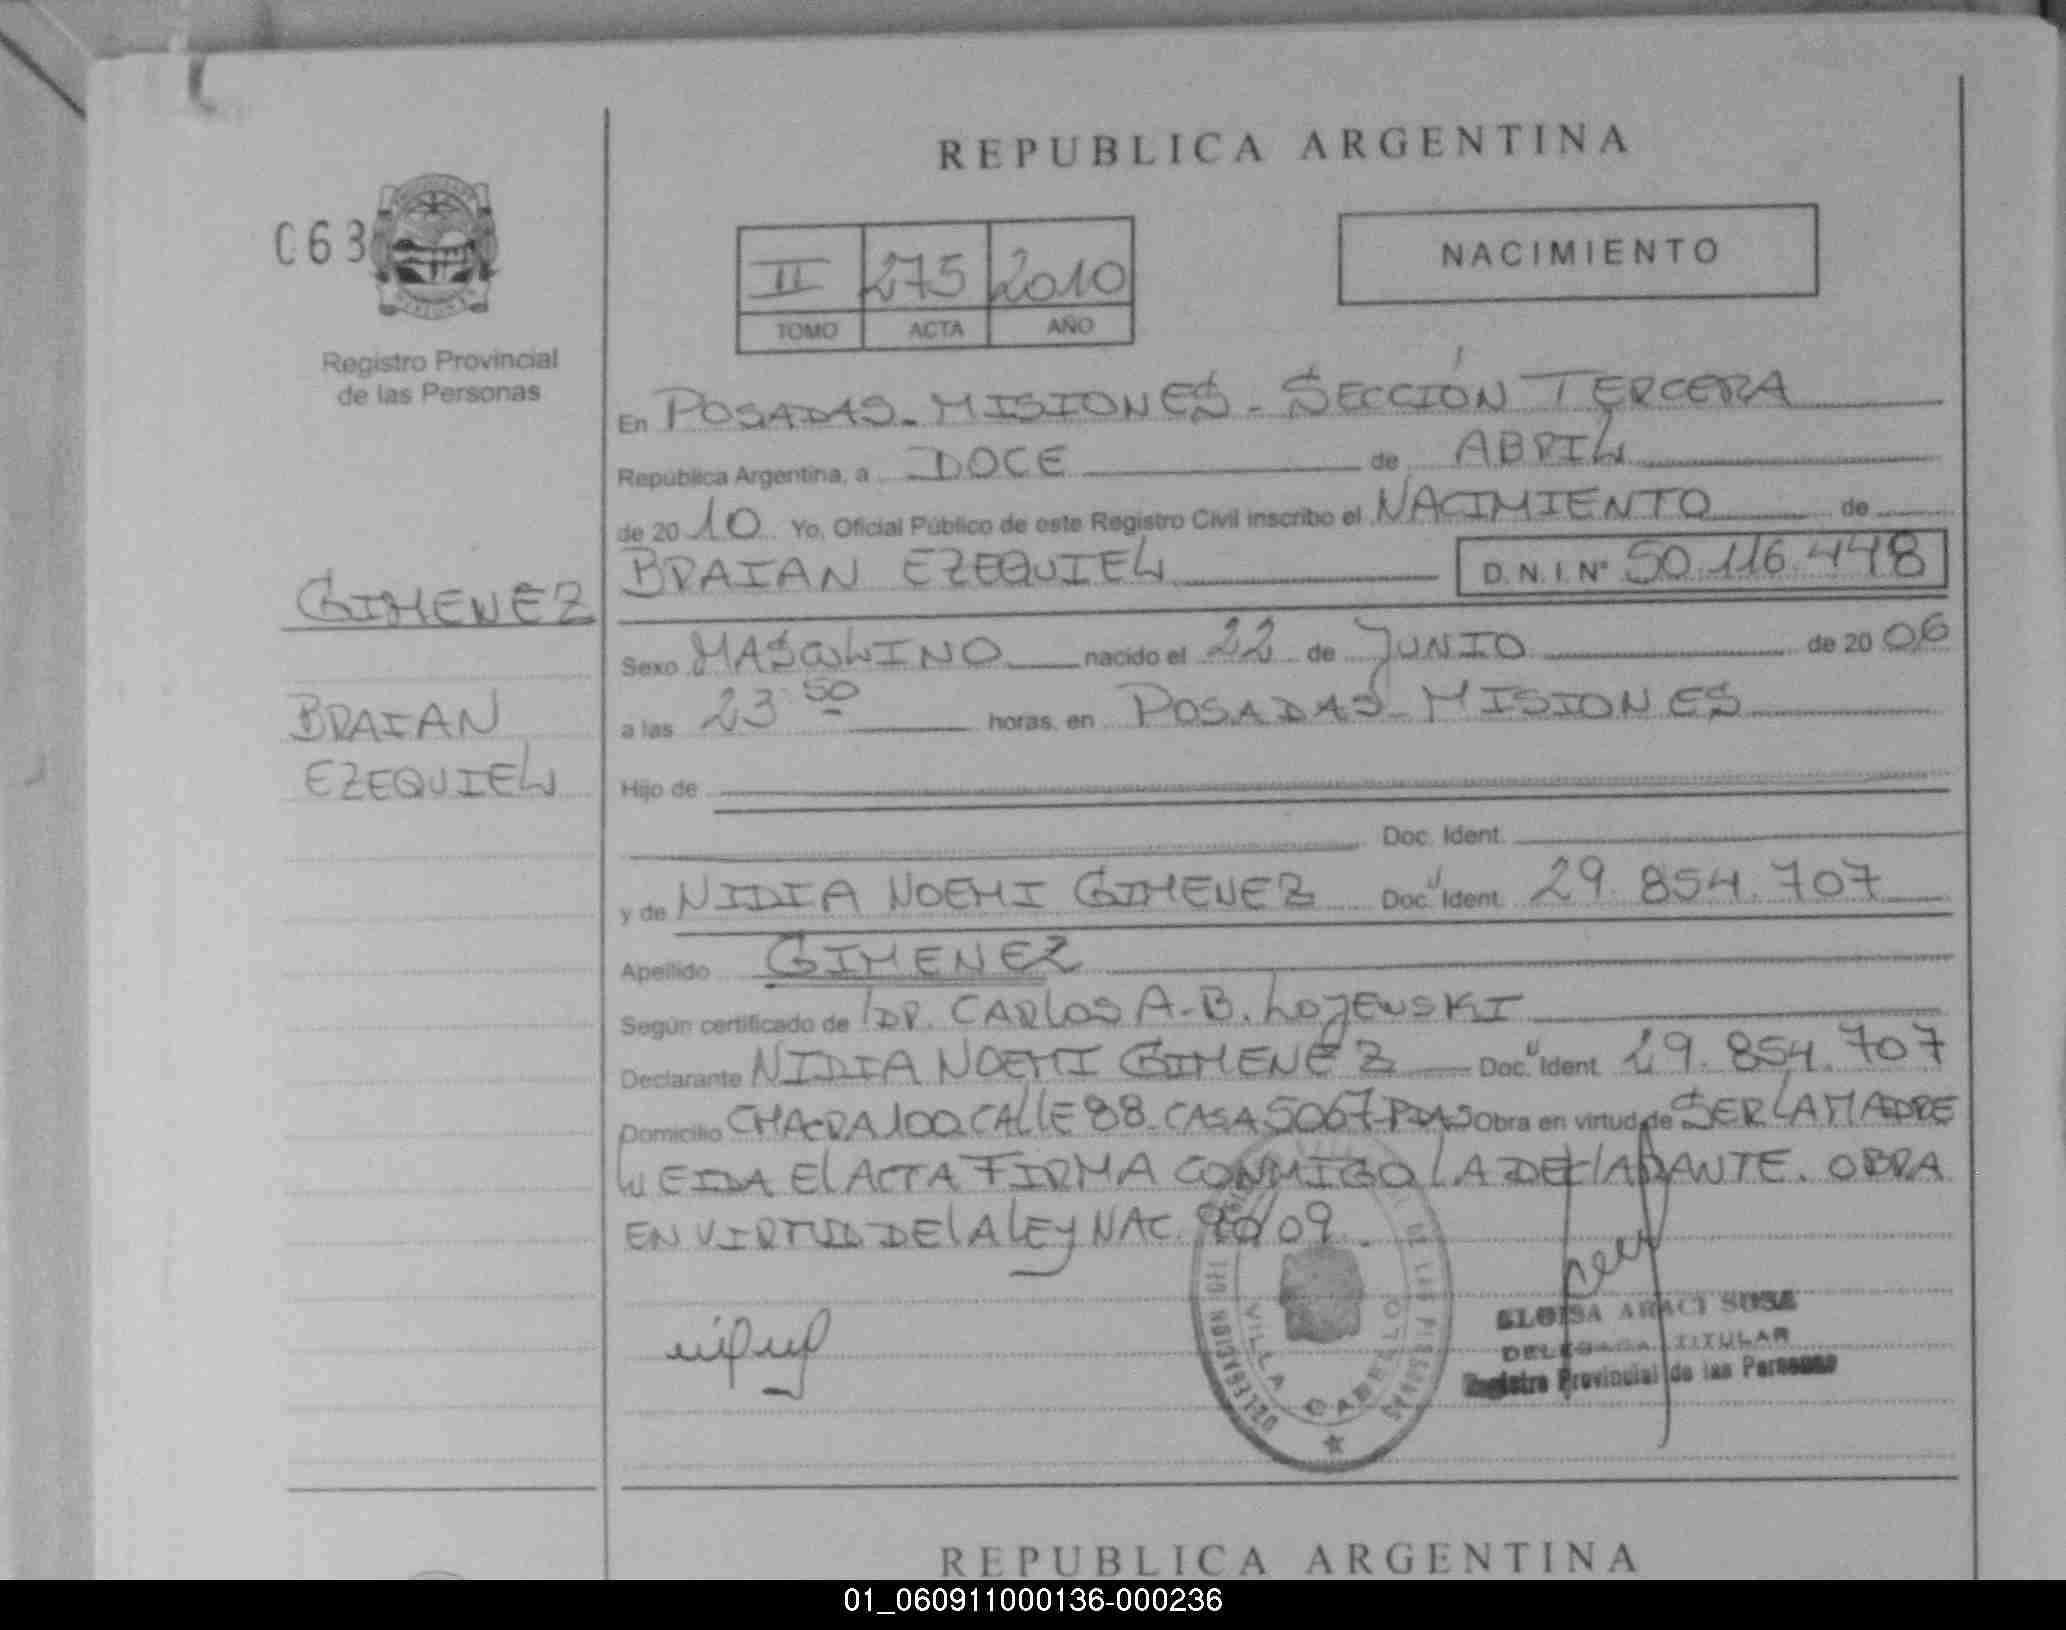 REPUBLICA ARGENTINA
C63
II 275 2010
TOMO ACTA AÑO
NACIMIENTO
Registro Provincial
de las Personas
En POSADAS - MISIONES - SECCIÓN TERCERA
República Argentina, a DOCE de ABRIL
de 20 10 Yo, Oficial Público de este Registro Civil inscribo el NACIMIENTO de
BRAIAN EZEQUIEL D.N.I. Nº 50.116.448
GIMENEZ
Sexo MASCULINO nacido el 22 de JUNIO de 20 06
BRAIAN
a las 23 50 horas, en POSADAS - MISIONES
EZEQUIEL
Hijo de
Doc. Ident.
y de NIDIA NOEMI GIMENEZ Doc. Ident. 29.854.707
Apellido GIMENEZ
Según certificado de DR. CARLOS A. B. LOJEWSKI
Declarante NIDIA NOEMI GIMENEZ Doc. Ident. 29.854.707
Domicilio CHACRA 100 CALLE 88 - CASA 5067 - PDAS Obra en virtud de SER LA MADRE
LEIDA El ACTA FIRMA CONMIGO LA DEClARANTE. OBRA
EN VIRTUD DE lA lEy NAC. 90/09
DELEGACION
DE LAS PERSONAS
VILLA CABELLO
ELOISA ARACI SOSA
DELEGADA TITULAR
Registro Provincial de las Personas
REPUBLICA ARGENTINA
01_060911000136-000236